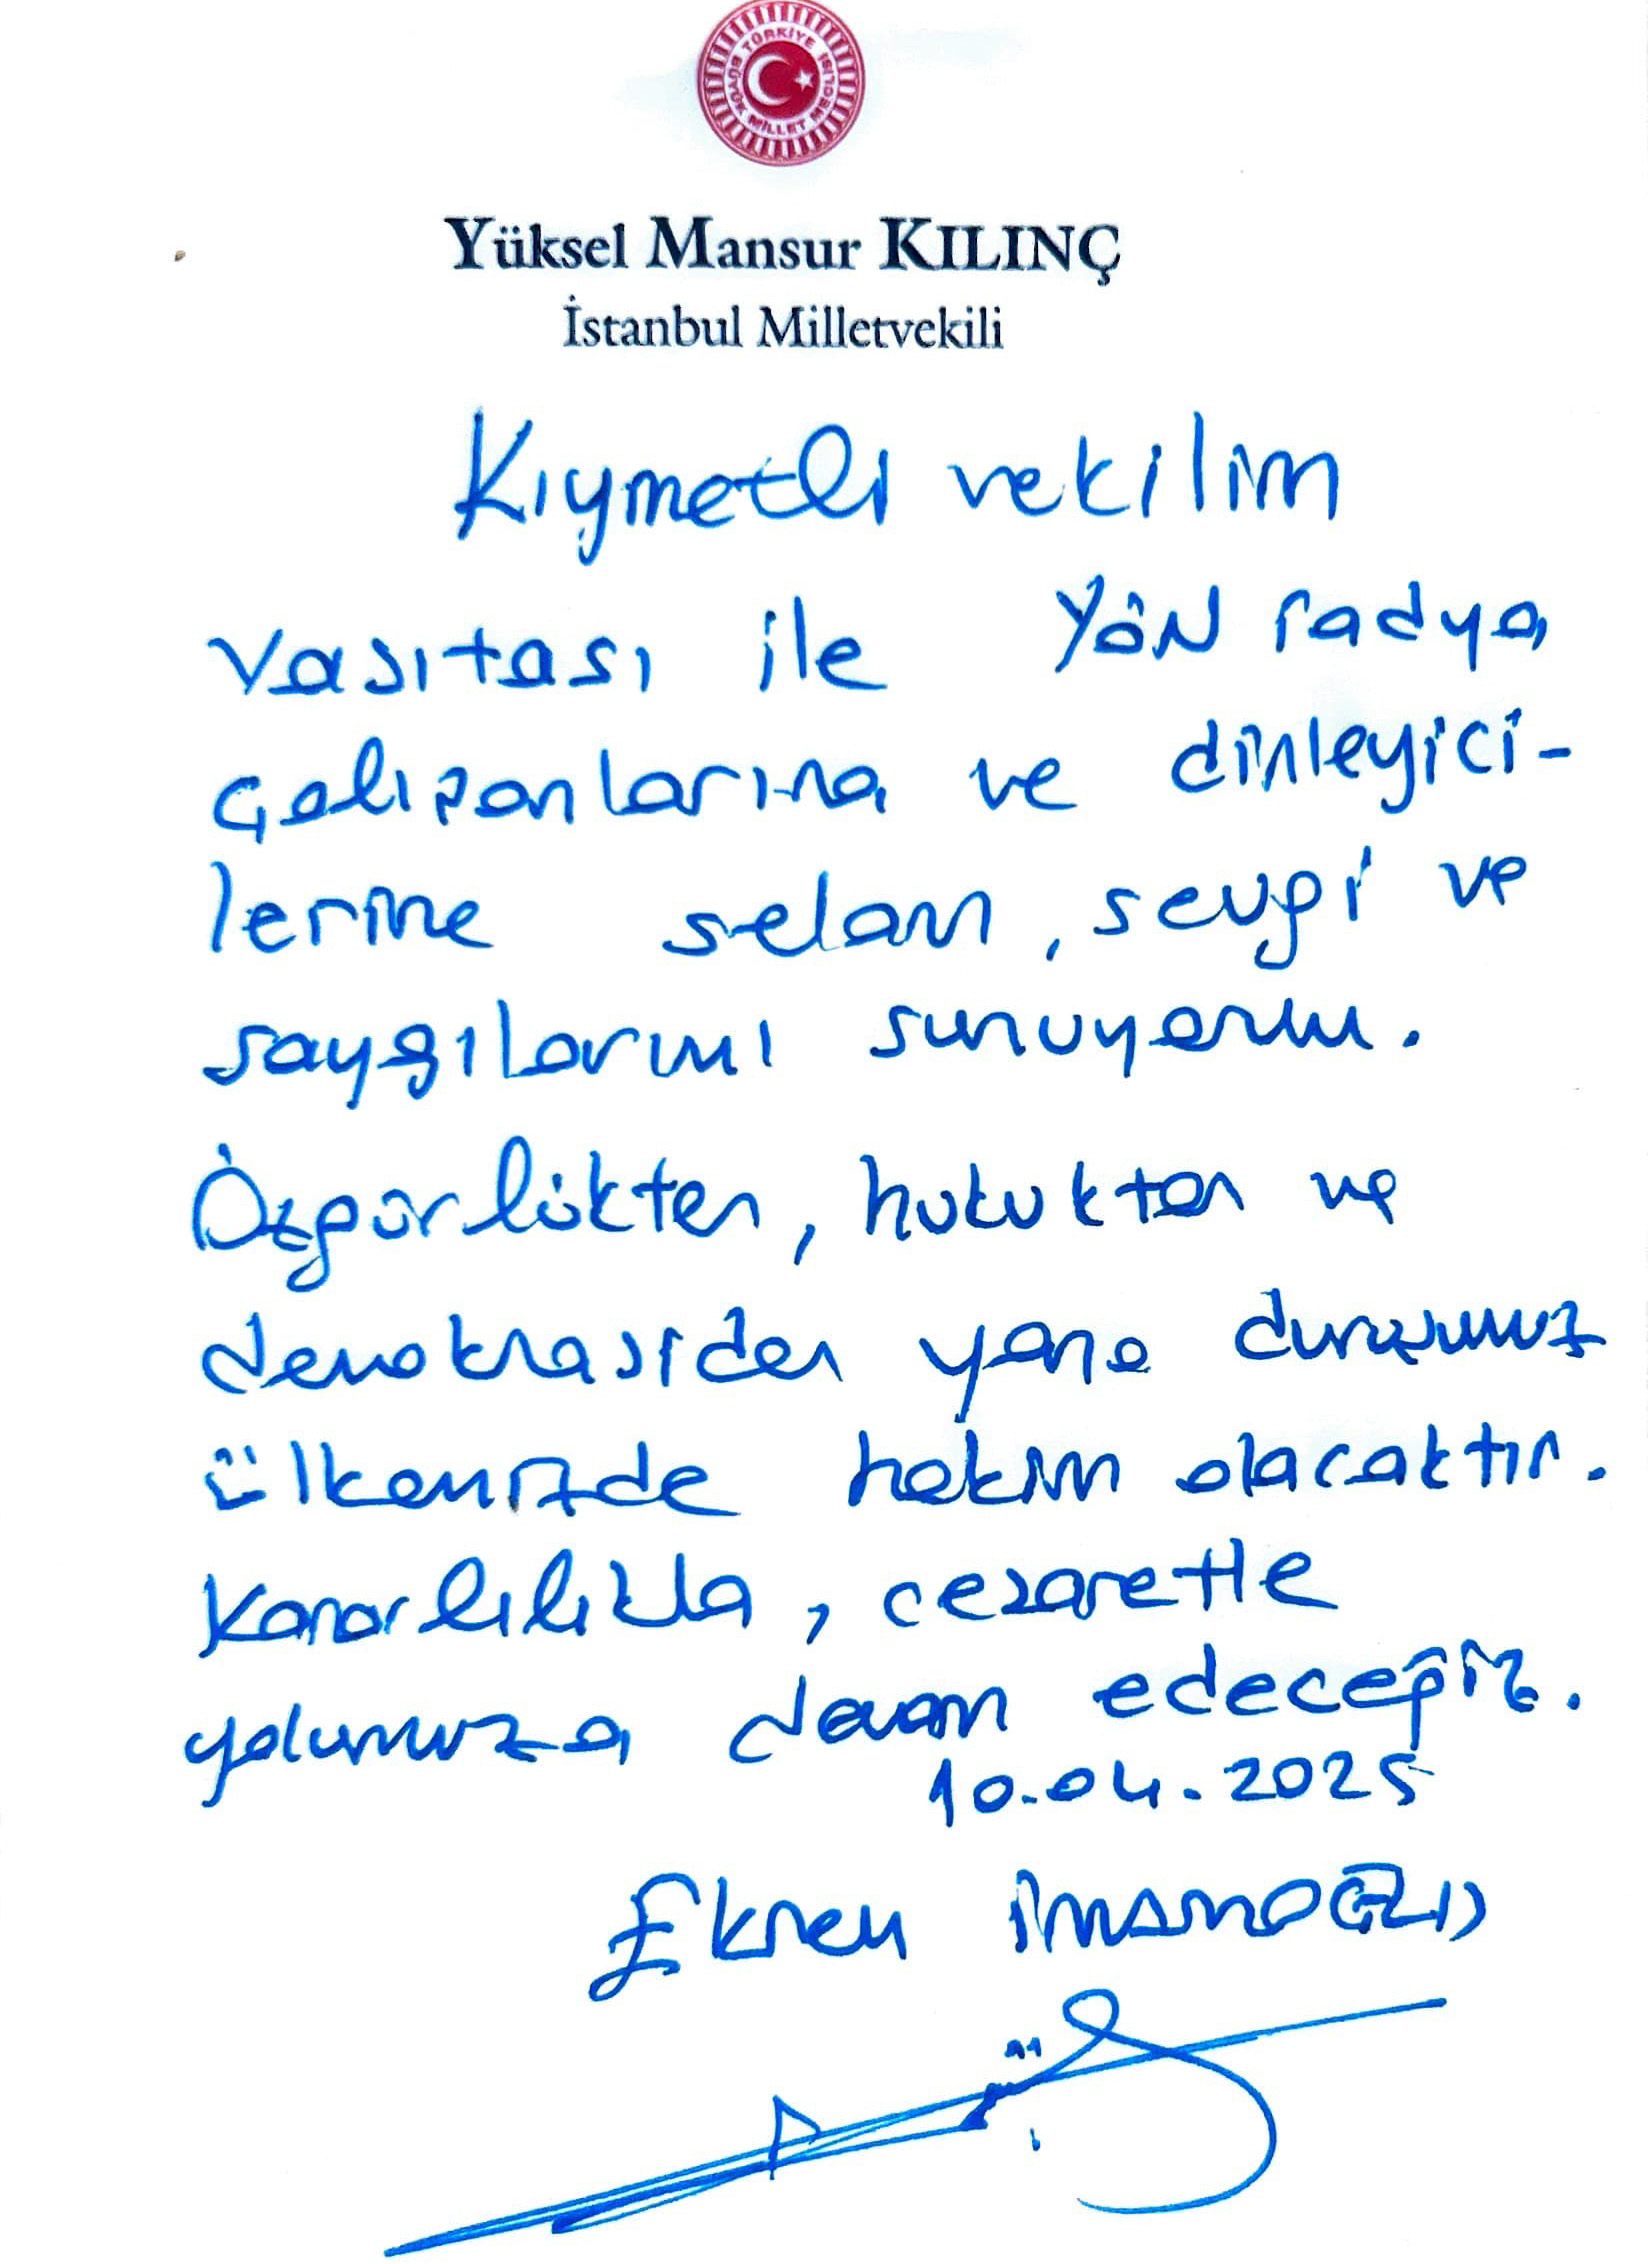 TÜRKİYE BÜYÜK MİLLET MECLİSİ
Yüksel Mansur KILINÇ
İstanbul Milletvekili
Kıymetli vekilim
vasıtası ile YÖN radyo
çalışanlarına ve dinleyici-
lerine selam, sevgi ve
saygılarımı sunuyorum.
Özgürlükten, hukuktan ve
demokrasiden yana duruşumuz
ülkemizde hakim olacaktır.
Kararlılıkla, cesaretle
yolumuza devam edeceğiz.
10.04.2025
Ekrem İMAMOĞLU